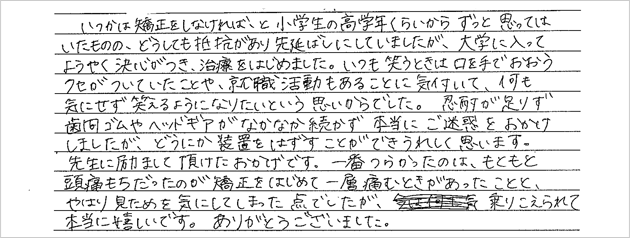 いつかは矯正をしなければ、と小学生の高学年くらいからずっと思っては
いたものの、どうしても抵抗があり先延ばしにしていましたが、大学に入って
ようやく決心がつき、治療をはじめました。いつも笑うときは口を手でおおう
クセがついていたことや、就職活動もあることに気付いて、何も
気にせず笑えるようになりたいという思いからでした。 忍耐が足りず
歯間ゴムやヘッドギアがなかなか続かず本当にご迷惑をおかけ
しましたが、どうにか装置をはずすことができうれしく思います。
先生に励まして頂けたおかげです。一番つらかったのは、もともと
頭痛もちだったのが矯正をはじめて一層痛むときがあったことと、
やはり見ためを気にしてしまった点でしたが、乗りこえられて
本当に嬉しいです。 ありがとうございました。